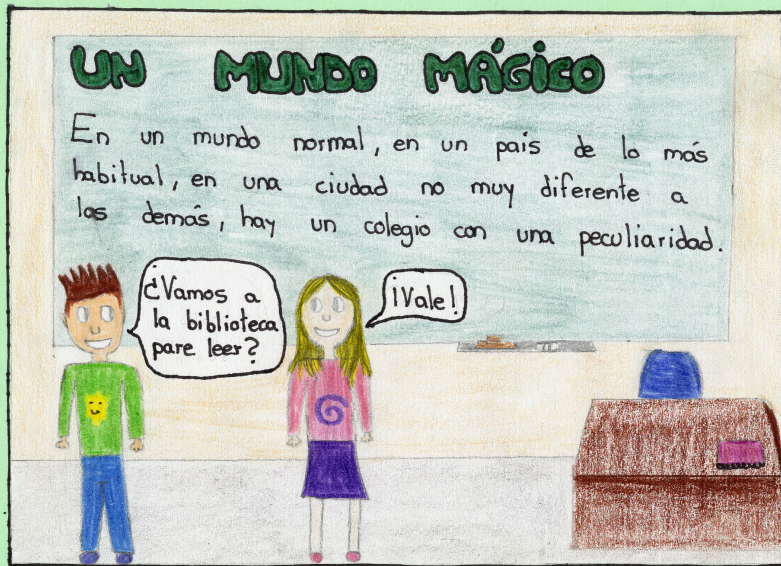 UN MUNDO MÁGICO
En un mundo normal, en un país de lo más
habitual, en una ciudad no muy diferente a
las demás, hay un colegio con una peculiaridad.
¿Vamos a
la biblioteca
pare leer?
¡Vale!